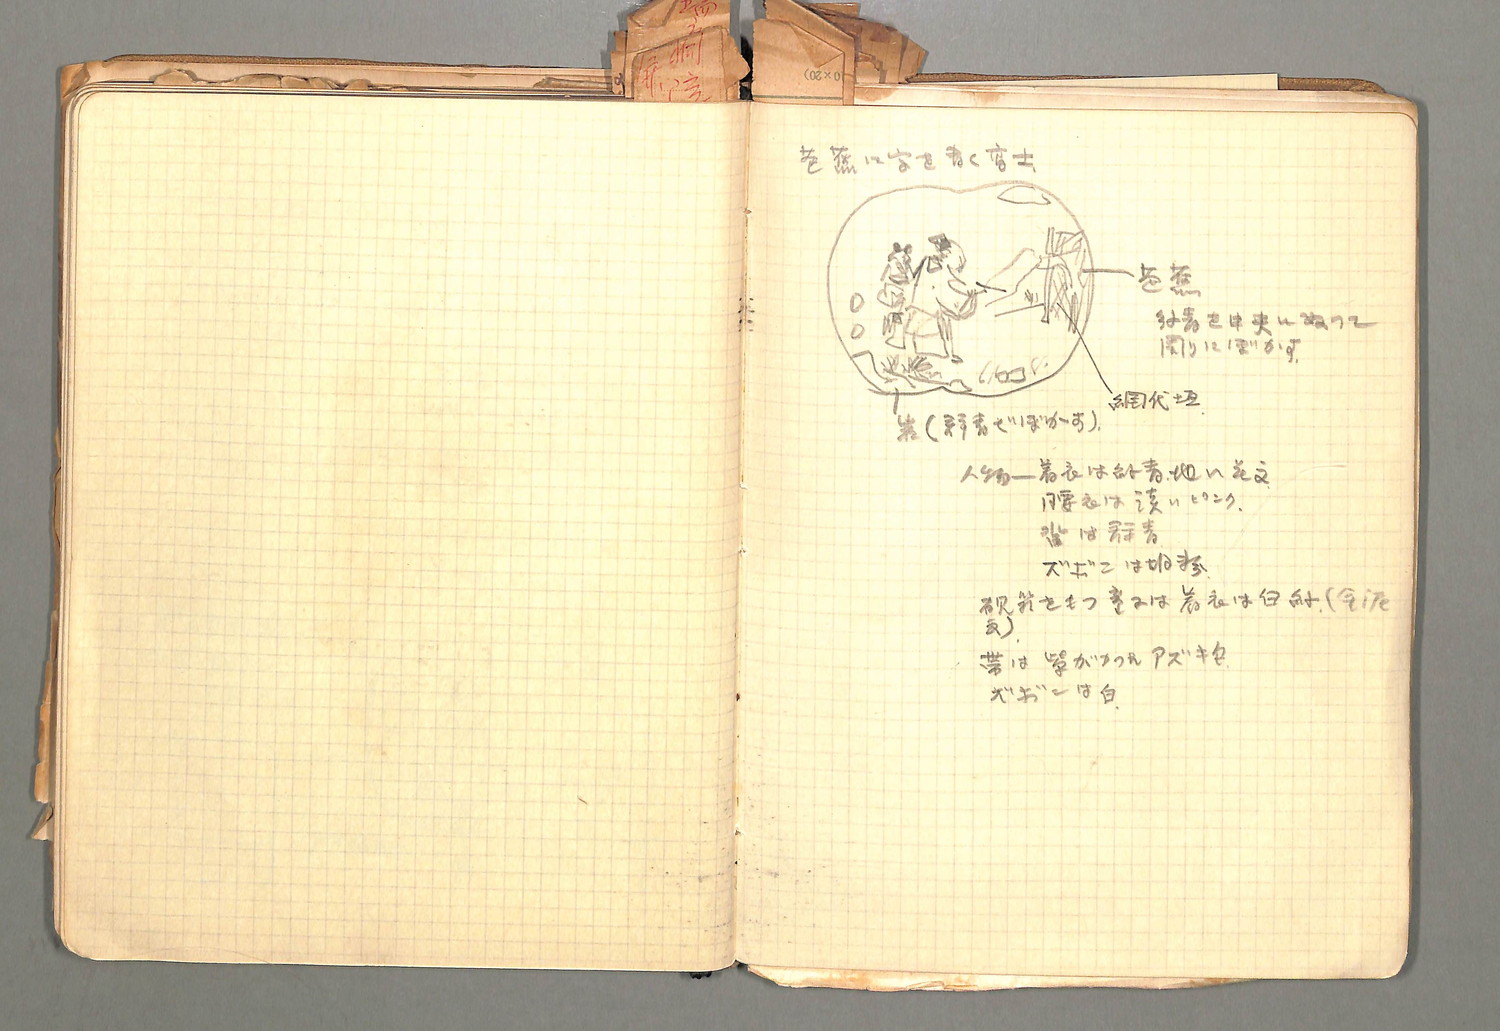 芭蕉に字を書く高士
芭蕉
紺青を中央にぬって
周りにぼかす
網代垣
岩(群青でぼかす)
人物—着衣は紺青地に花文
腰衣は淡いピンク
沓は群青
ズボンは胡粉
硯箱をもつ童子は着衣は白緑(金泥
文)
帯は紫がかつた アズキ色
ズボンは白
0×20)